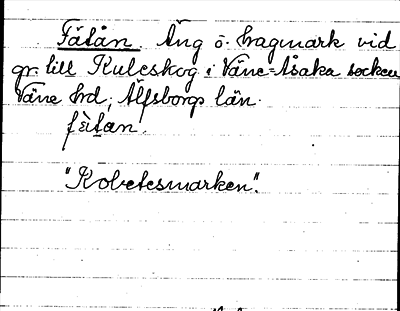 Fåtån. Äng o. hagmark vid
gr. till Kuleskog i Väne-Åsaka socken
Väne hrd, Älfsborgs län.
fètan.
"Kobetesmarken".